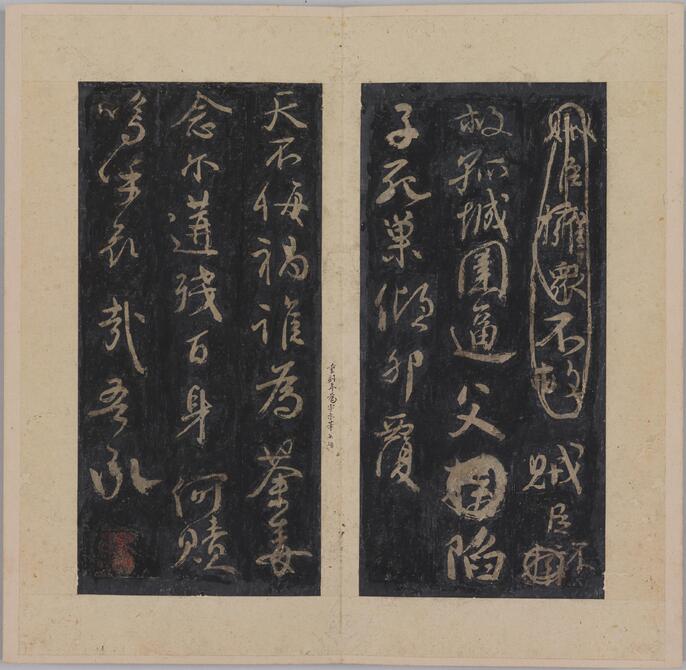 賊臣擁眾不救賊臣不
救孤城圍逼父陷
子死巢傾卵覆
天不悔禍誰為荼毒
念尔遘殘百身何贖
嗚呼哀哉吾承